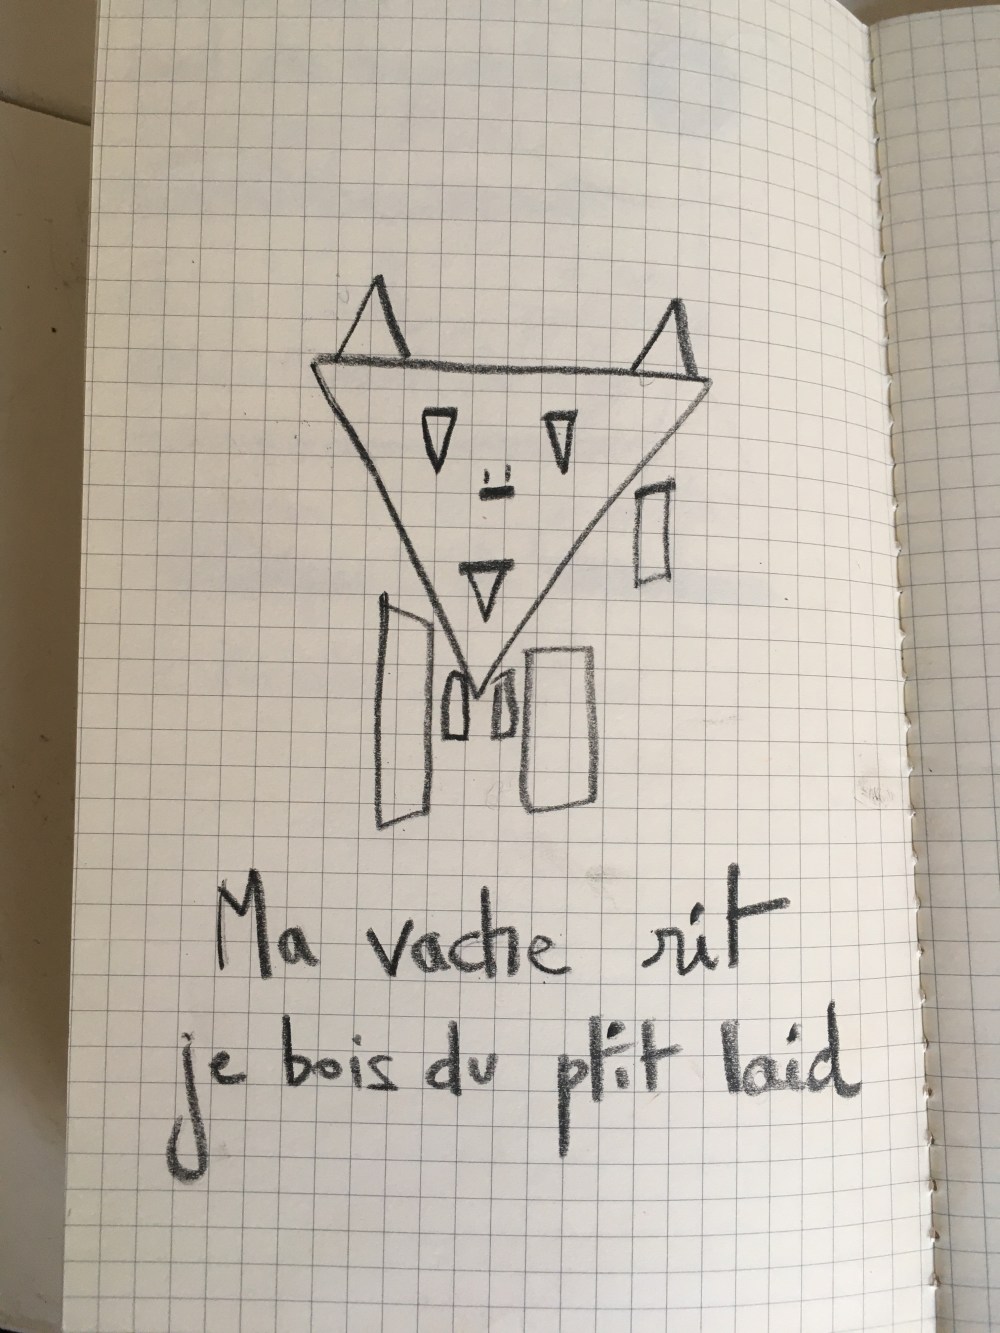 Ma vache rit
je bois du ptit laid